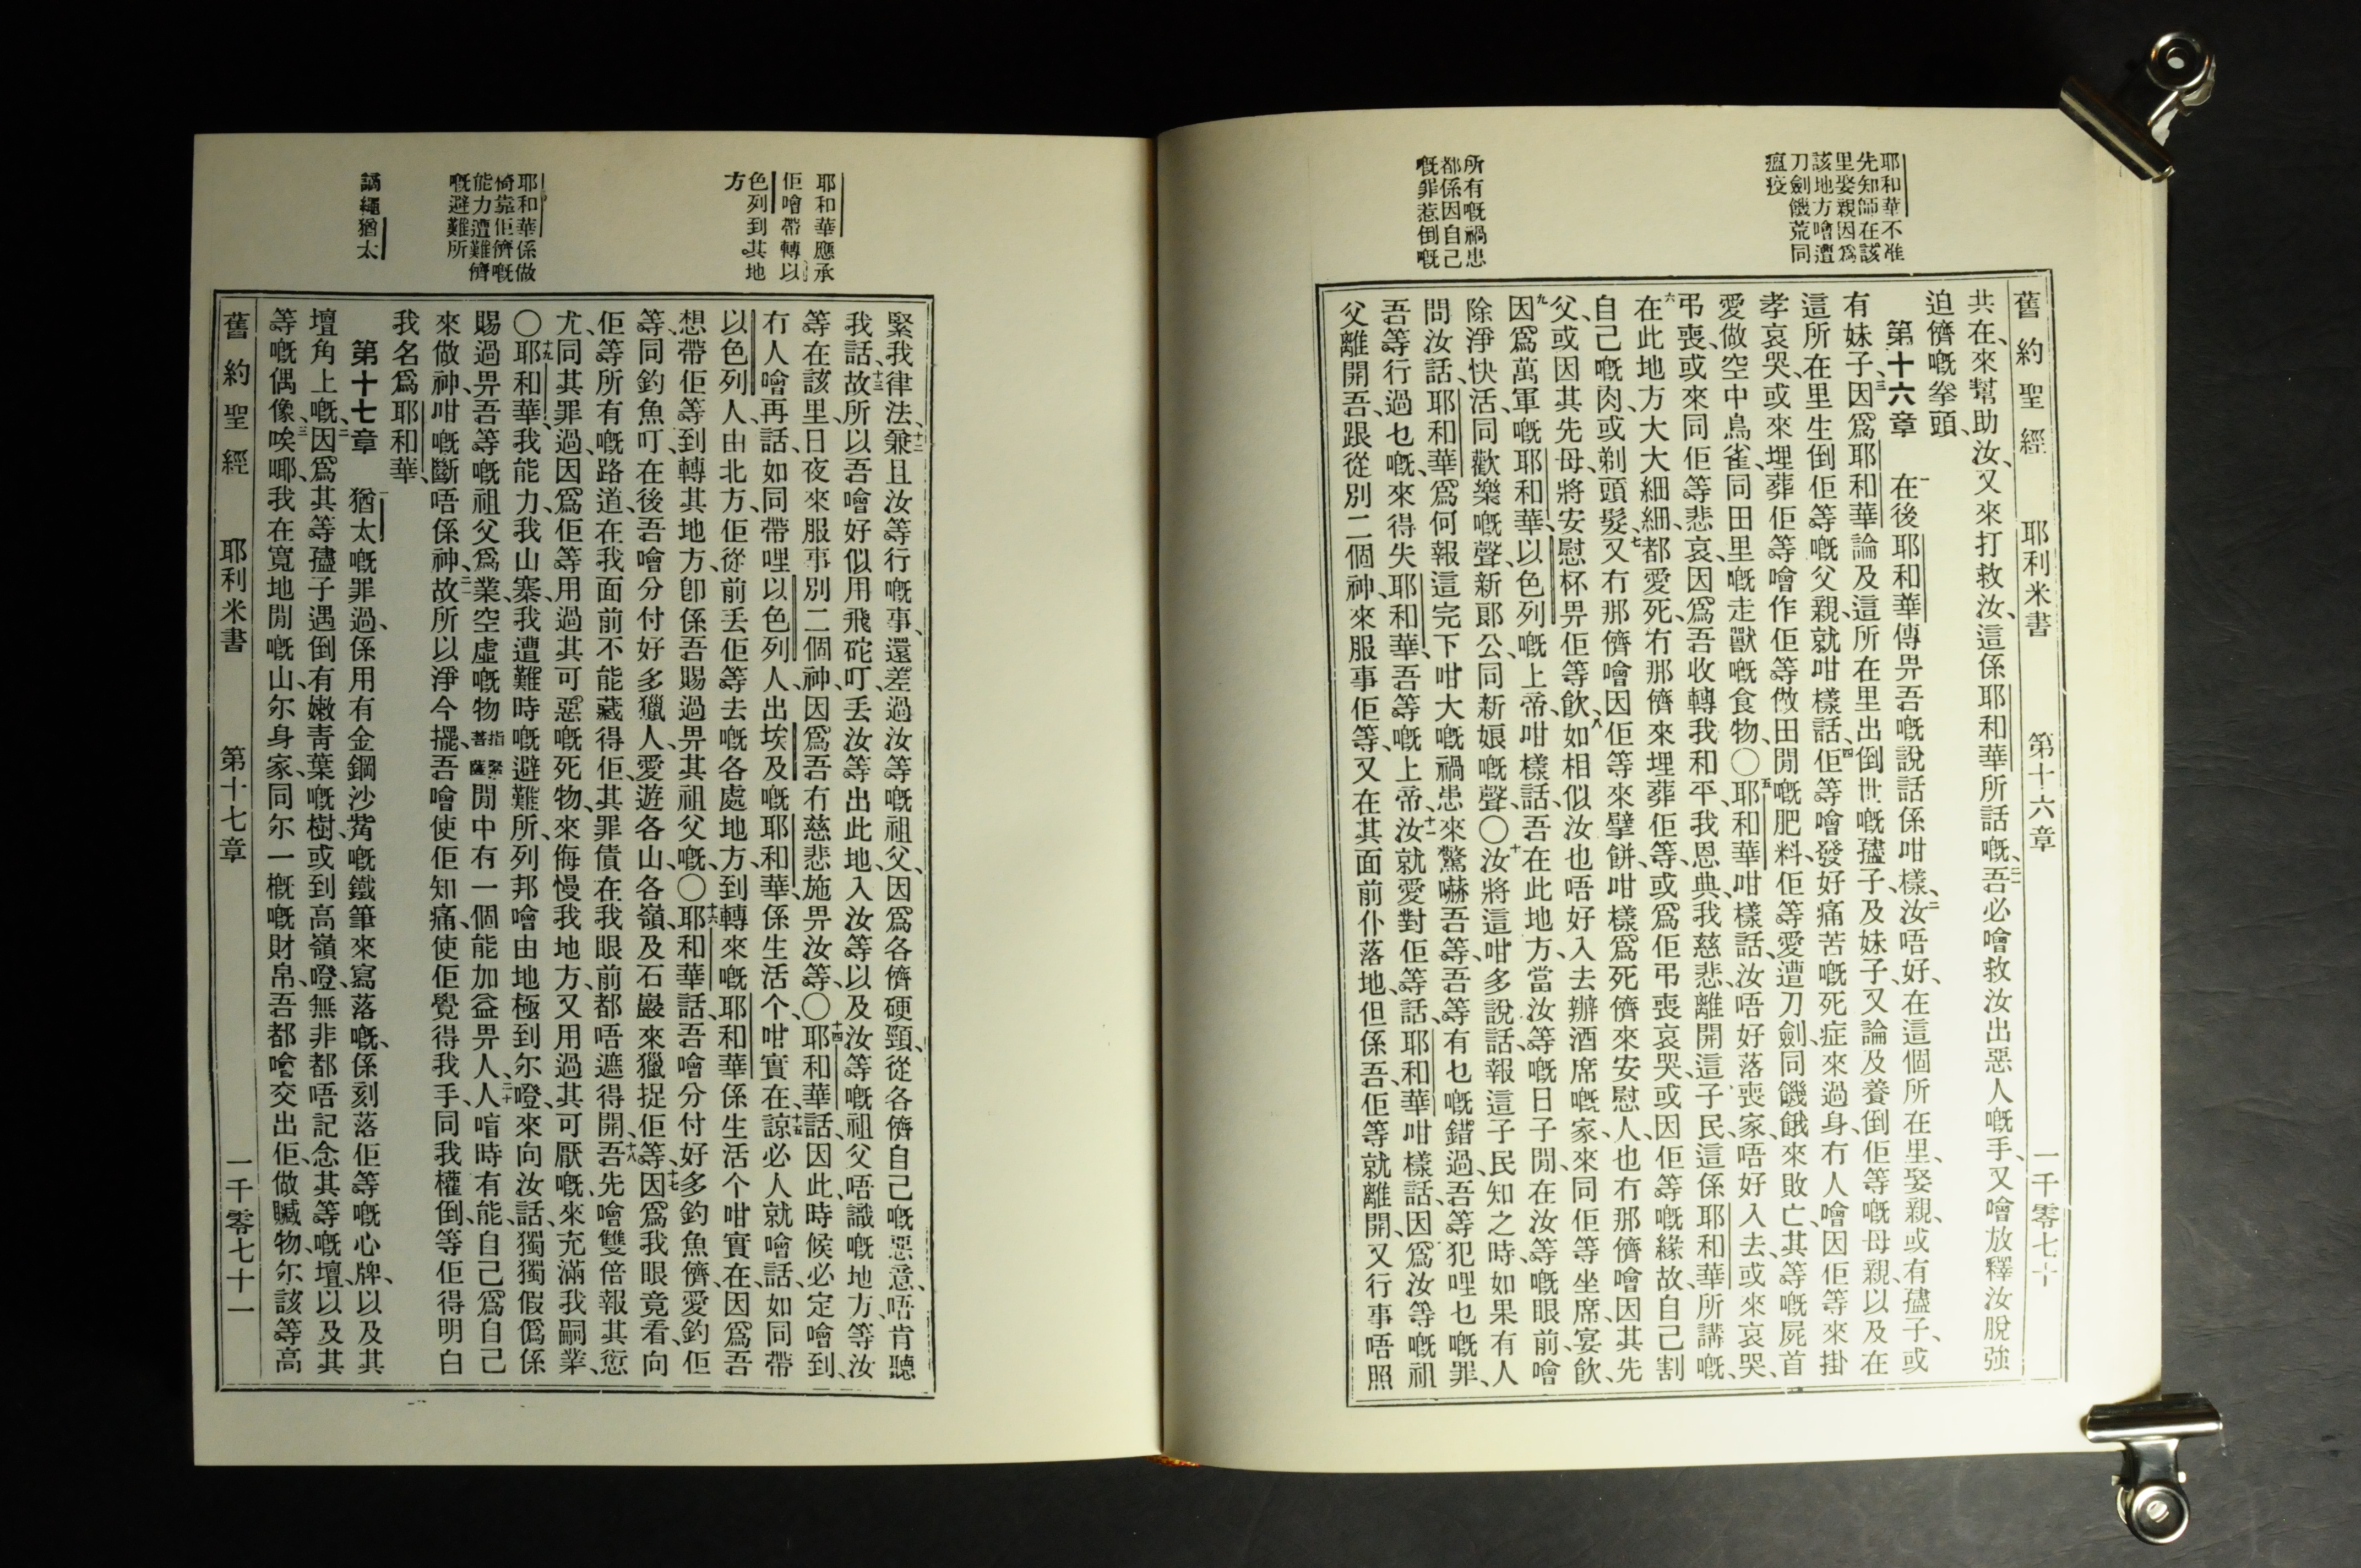 耶和華不准
先知師在該
里娶親因爲
該地方噲遭
刀劍饑荒同
瘟疫
所有嘅禍患
都係因自己
嘅罪惹倒嘅
舊約聖經 耶利米書 第十六章 一千零七十
共在、來幫助汝、又來打救汝、這係耶和華所話嘅、二一吾必噲救汝出惡人嘅手、又噲放釋汝脫強
迫儕嘅拳頭、
第十六章 一在後耶和華傳畀吾嘅說話係咁樣、二汝唔好、在這個所在里、娶親、或有孻子、或
有妹子、三因爲耶和華論及這所在里出倒世嘅孻子、及妹子、又論及養倒佢等嘅母親、以及在
這所在里生倒佢等嘅父親、就咁樣話、四佢等噲發好痛苦嘅死症來過身、冇人噲因佢等來掛
孝哀哭、或來埋葬佢等、噲作佢等做田閒嘅肥料、佢等愛遭刀劍、同饑餓來敗亡、其等嘅屍首
愛做空中鳥雀、同田里嘅走獸嘅食物、〇五耶和華咁樣話、汝唔好落喪家、唔好入去、或來哀哭、
弔喪、或來同佢等悲哀、因爲吾收轉我和平、我恩典、我慈悲、離開這子民、這係耶和華所講嘅、
六在此地方大大細細、七都愛死、冇那儕來埋葬佢等、或爲佢弔喪哀哭、或因佢等嘅緣故、自己割
自己嘅肉、或剃頭髮、又冇那儕噲因佢等來擘餅、咁樣爲死儕來安慰人、也冇那儕噲因其先
父、或因其先母、將安慰杯畀佢等飲、八如相似汝也唔好入去辦酒席嘅家、來同佢等坐席、宴飲、
九因爲萬軍嘅耶和華、以色列嘅上帝、咁樣話、吾在此地方、當汝等嘅日子閒、在汝等嘅眼前、噲
除淨快活、同歡樂嘅聲、新郎公、同新娘嘅聲、〇十汝將這咁多說話、報這子民知之時、如果有人
問汝話、耶和華爲何報這完下咁大嘅禍患、來驚嚇吾等、吾等有乜嘅錯過、吾等犯哩乜嘅罪、
吾等行過乜嘅、來得失耶和華、吾等嘅上帝、十一汝就愛對佢等話、耶和華咁樣話、因爲汝等嘅祖
父離開吾、跟從別二個神、來服事佢等、又在其面前仆落地、但係吾、佢等就離開、又行事唔照
耶和華應承
佢噲帶轉以
色列到其地
方
耶和華係做
倚靠佢儕嘅
能力遭難儕
嘅避難所
講繩猶太
緊我律法、十二兼且汝等行嘅事、還差過汝等嘅祖父、因爲各儕硬頸、從各儕自己嘅惡意、唔肯聽
我話、十三故所以吾噲好似用飛砣叮、丢汝等出此地、入汝等以及汝等嘅祖父、唔識嘅地方、等汝
等在該里、日夜來服事別二個神、因爲吾冇慈悲施畀汝等、〇十四耶和華話、因此時候必定噲到、
冇人噲再話、如同帶哩以色列人、出埃及嘅耶和華、係生活个、咁實在、十五諒必人就噲話、如同帶
以色列人、由北方、佢從前丢佢等去嘅各處地方、到轉來嘅耶和華係生活个咁實在、因爲吾
想帶佢等到轉其地方、卽係吾賜過畀其祖父嘅、〇十六耶和華話、吾噲分付好多釣魚儕、愛釣佢
等、同釣魚叮、在後吾噲分付好多獵人、愛遊各山、各嶺、及石巖來獵捉佢等、十七因爲我眼竟看、向
佢等所有嘅路道、在我面前不能藏得佢、其罪債在我眼前、都唔遮得開、十八吾先噲雙倍報其愆
尤、同其罪過、因爲佢等用過其可惡嘅死物、來侮慢我地方、又用過其可厭嘅、來充滿我嗣業、
〇十九耶和華、我能力、我山寨、我遭難時嘅避難所、列邦噲由地極到尔噔、來向汝話、獨獨假僞係
賜過畀吾等嘅祖父爲業、空虛嘅物指緊菩薩閒中有一個能加益畀人、二十人喈時有能、自己爲自己
來做神、咁嘅斷唔係神、二一故所以淨今擺、吾噲使佢知痛、使佢覺得我手、同我權倒、等佢得明白
我名爲耶和華、
第十七章 一猶太嘅罪過、係用有金鋼沙觜嘅鐵筆來寫落嘅、係刻落佢等嘅心牌、以及其
壇角上嘅、二因爲其等孻子遇倒有嫩靑葉嘅樹、或到高嶺噔、無非都唔記念其等嘅壇、以及其
等嘅偶像、三唉哪、我在寬地閒嘅山、尔身家、同尔一概嘅財帛、吾都噲交出佢、做贓物、尔該等高
舊約聖經 耶利米書 第十七章 一千零七十一